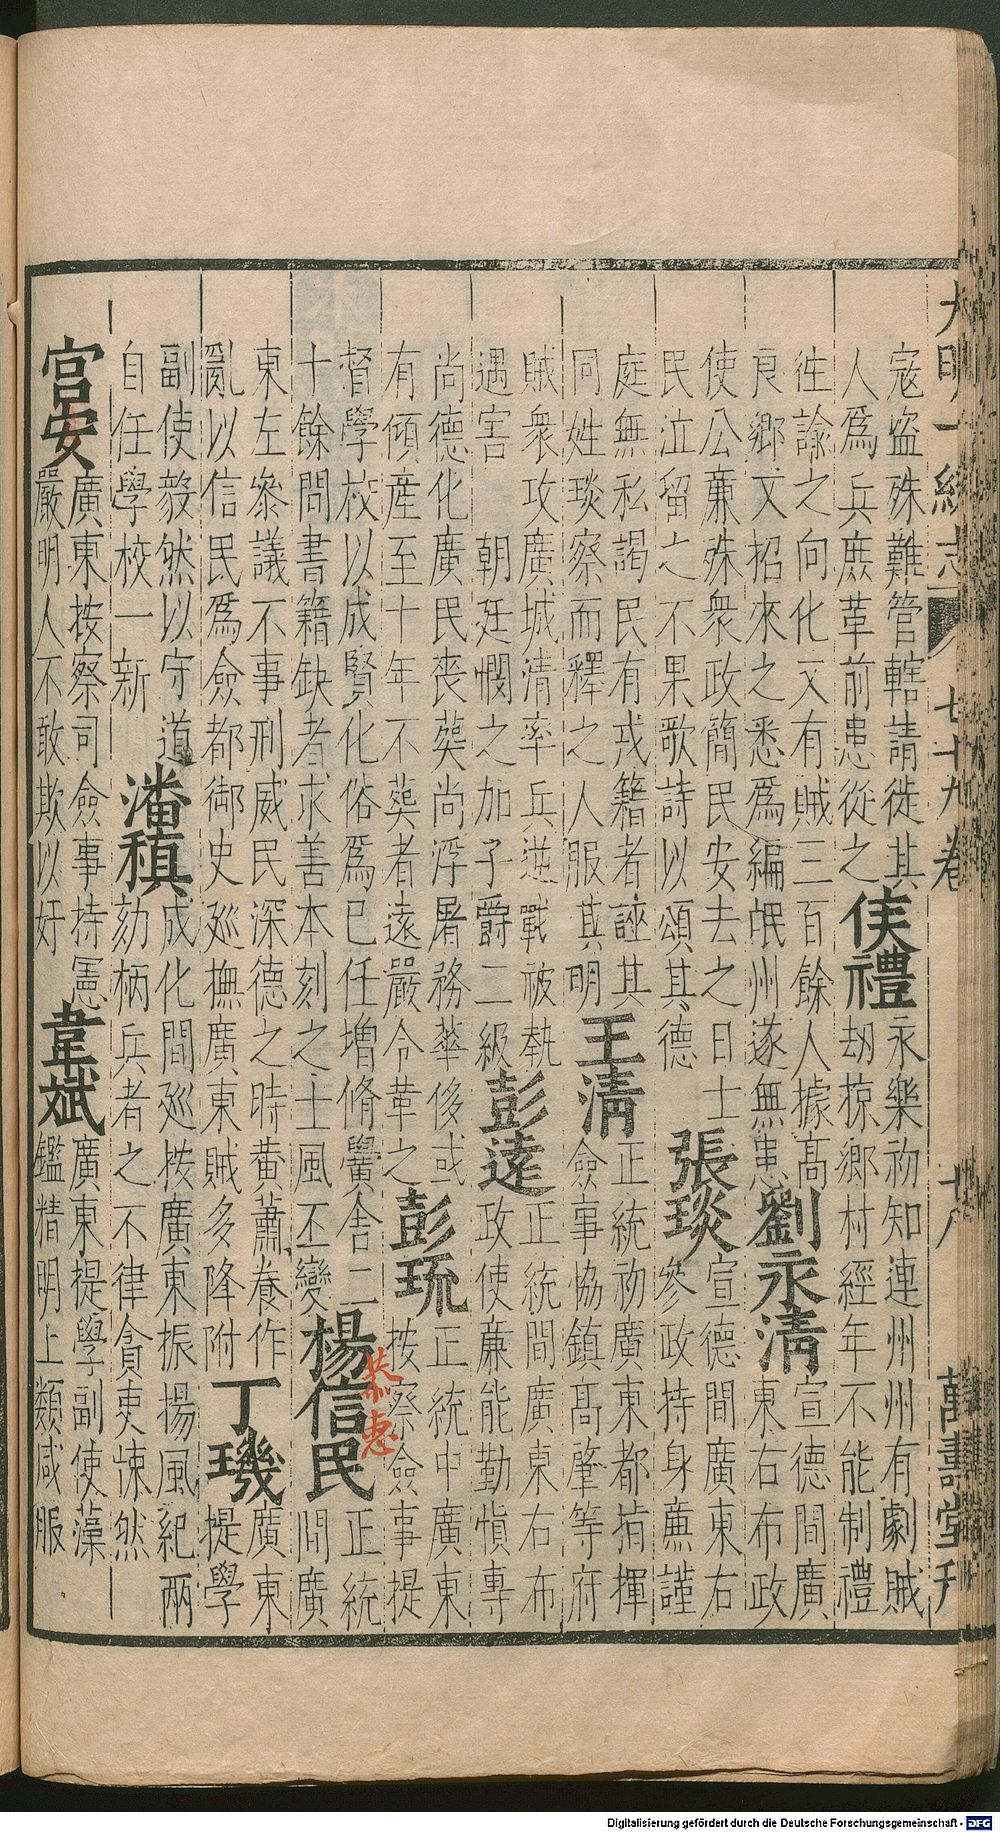 大明一統志 七十九卷 十八 萬壽堂刊
寇盜殊難管轄請徙其
人爲兵庶革前患從之
侯禮
永樂初知連州州有劇賊
刼掠鄉村經年不能制禮
徃諭之向化又有賊三百餘人據高
良鄉又招來之悉爲編氓州遂無患
劉永清
宣德間廣
東右布政
使公亷殊衆政簡民安去之日士
民泣留之不果歌詩以頌其德
張琰
宣德間廣東右
參政持身亷謹
庭無私謁民有戎籍者誣其
同姓琰察而釋之人服其明
王清
正統初廣東都指揮
僉事協鎮高肇等府
賊衆攻廣城清率兵逆戰被執
遇害 朝廷憫之加子爵二級
彭遠
正統間廣東右布
政使亷能勤慎專
尚德化廣民喪葬尚浮屠務華侈或
有傾産至十年不葬者遠嚴令革之
彭琉
正統中廣東
按察僉事提
督學校以成賢化俗爲已任增脩黌舍二
十餘間書籍缺者求善本刻之士風丕變
楊信民
恭惠
正統
間廣
東左叅議不事刑威民深德之時黄蕭養作
亂以信民爲僉都御史廵撫廣東賊多降附
丁璣
廣東
提學
副使毅然以守道
自任學校一新
潘稹
成化間廵按廣東振揚風紀兩
劾柄兵者之不律貪吏悚然
宮安
廣東按察司僉事持憲
嚴明人不敢欺以奸
韋斌
廣東提學副使藻
鑑精明上類咸服
Digitalisierung gefördert durch die Deutsche Forschungsgemeinschaft - DFG